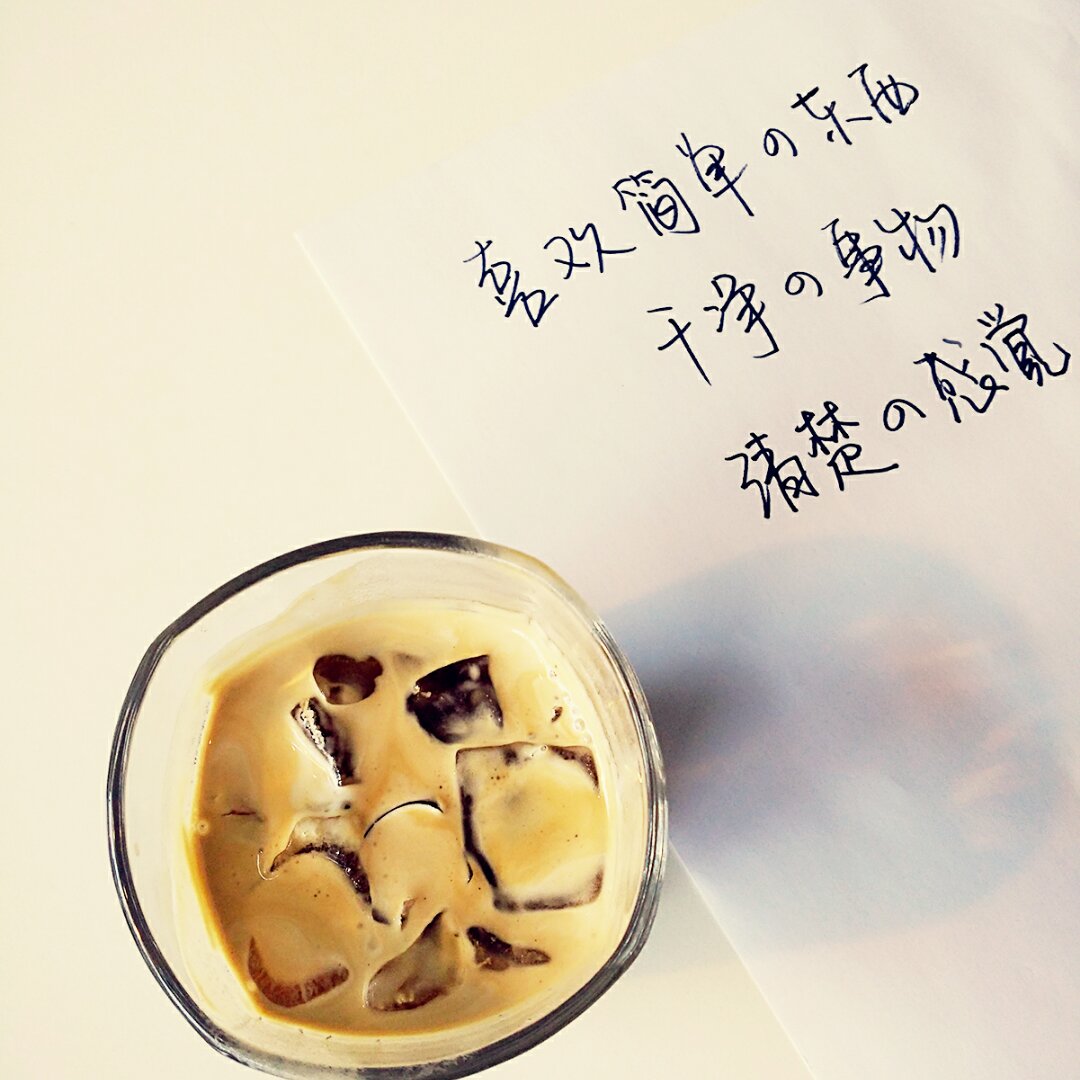 喜欢简单の东西
干净の事物
清楚の感觉